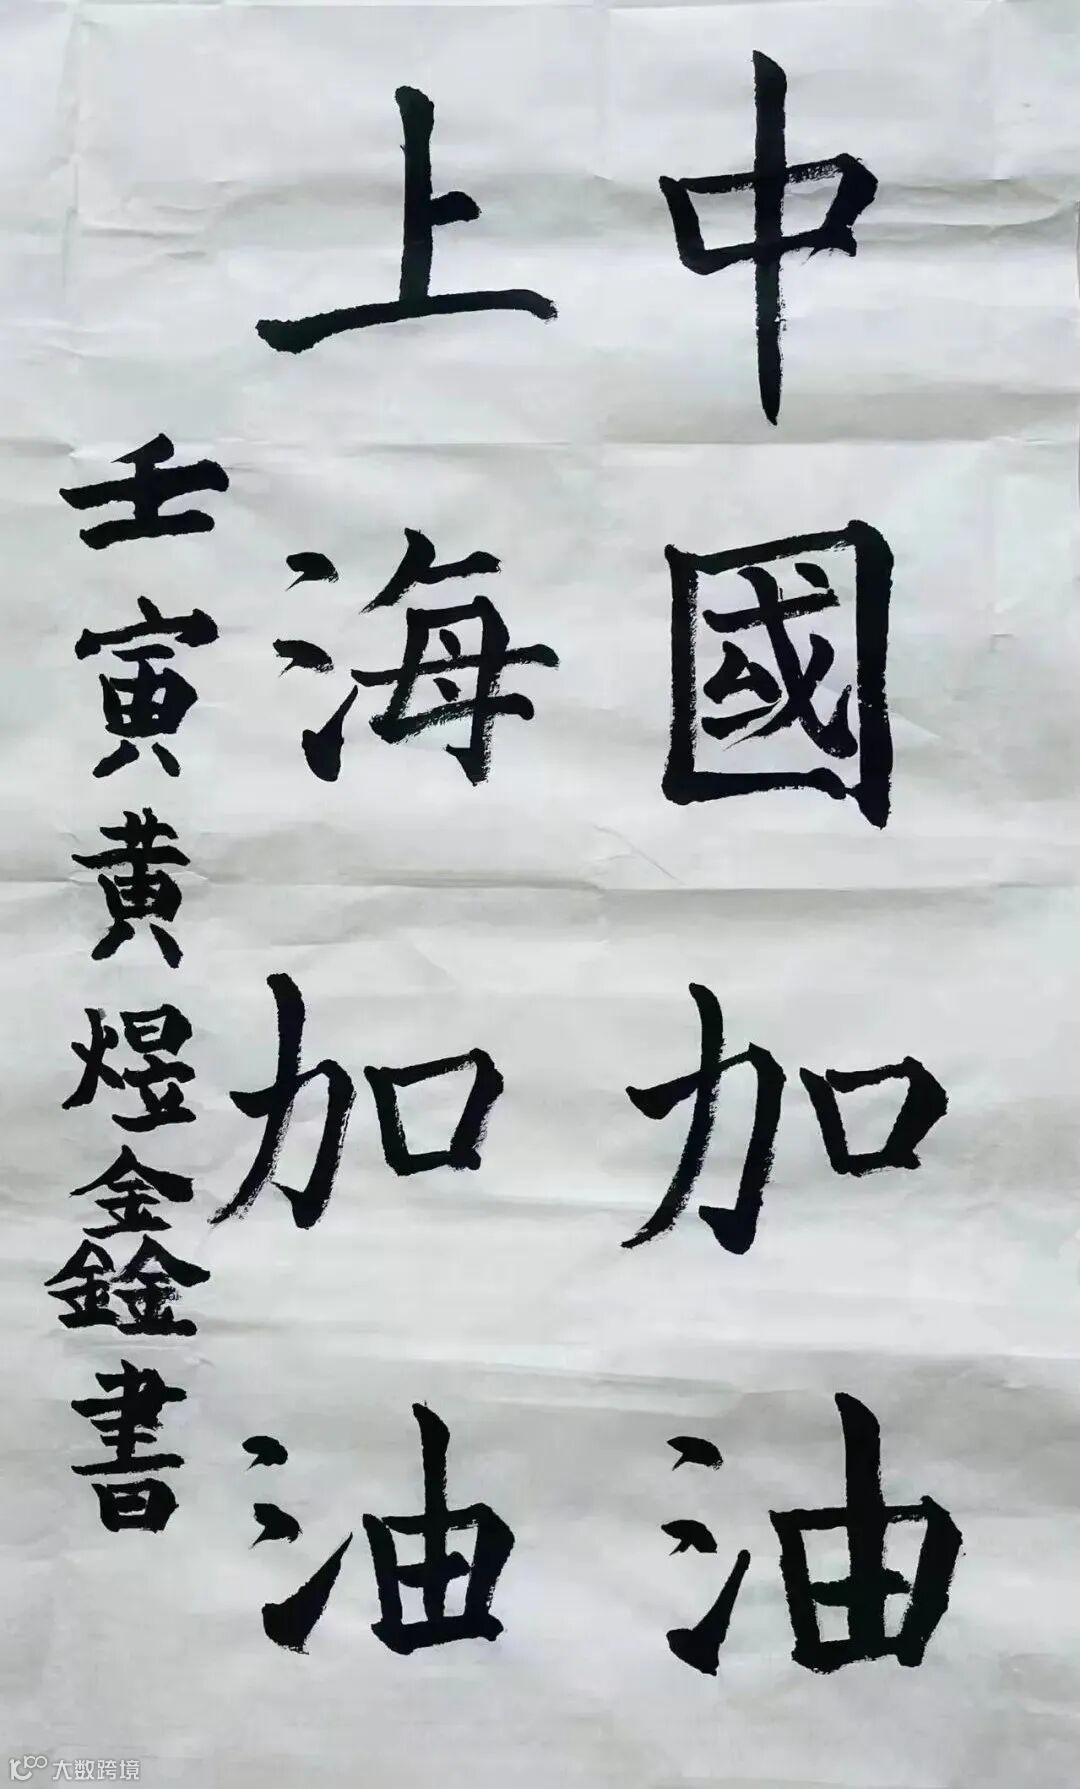 中國加油
上海加油
壬寅黄煜鑫書
大数跨境